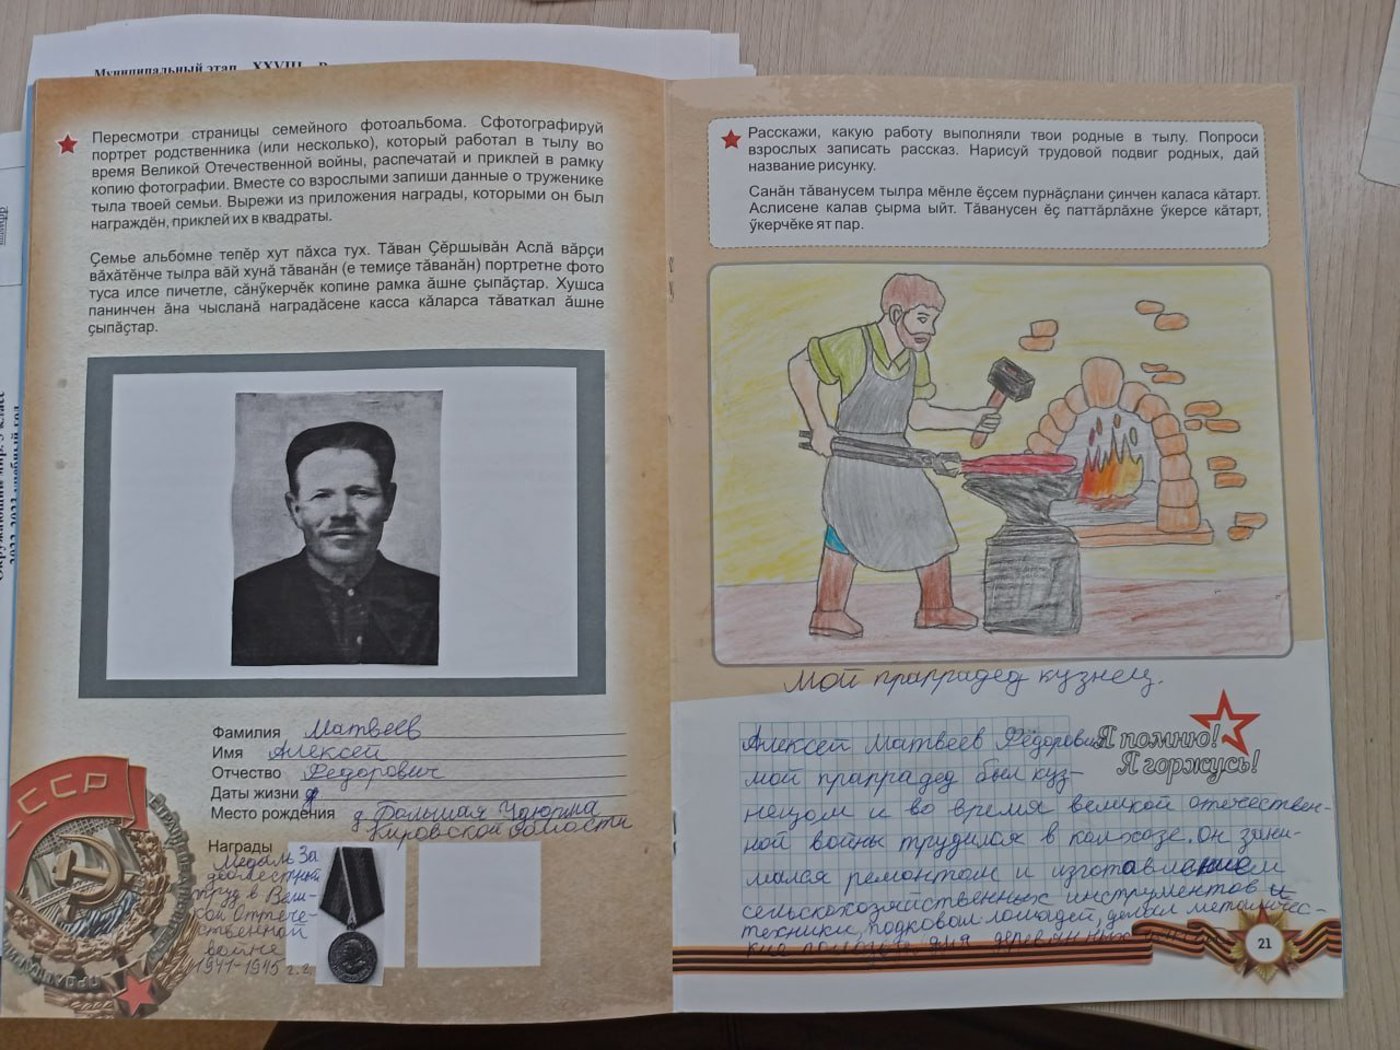 Муниципальный этап XXVIII
Окружающий мир. 3 класс
2022-2023 учебный год
Пересмотри страницы семейного фотоальбома. Сфотографируй
портрет родственника (или несколько), который работал в тылу во
время Великой Отечественной войны, распечатай и приклей в рамку
копию фотографии. Вместе со взрослыми запиши данные о труженике
тыла твоей семьи. Вырежи из приложения награды, которыми он был
награждён, приклей их в квадраты.
Ҫемье альбомне тепӗр хут пӑхса тух. Тӑван Ҫӗршывӑн Аслӑ вӑрҫи
вӑхӑтӗнче тылра вӑй хунӑ тӑванӑн (е темиҫе тӑванӑн) портретне фото
туса илсе пичетле, сӑнӳкерчӗк копине рамка ӑшне ҫыпӑҫтар. Хушса
панинчен ӑна чысланӑ наградӑсене касса кӑларса тӑваткал ӑшне
ҫыпӑҫтар.
Фамилия Матвеев
Имя Алексей
Отчество Федорович
Даты жизни
Место рождения д. Большая
Кировской области
Награды
Медаль За
доблестный
труд в Вели-
кой Отече-
ственной
войне
1941-1945 г.г.
СССР
Расскажи, какую работу выполняли твои родные в тылу. Попроси
взрослых записать рассказ. Нарисуй трудовой подвиг родных, дай
название рисунку.
Санӑн тӑванусем тылра мӗнле ӗҫсем пурнӑҫлани ҫинчен каласа кӑтарт.
Аслисене калав ҫырма ыйт. Тӑванусен ӗҫ паттӑрлӑхне ӳкерсе кӑтарт,
ӳкерчӗке ят пар.
Мой прапрадед кузнец.
Я помню!
Я горжусь!
Алексей Матвеев Фёдорович
мой прапрадед был куз-
нецом и во время великой отечествен-
ной войны трудился в колхозе. он зани-
мался ремонтом и изготавлением
сельскохозяйственных инструментов и
техники, подковал лошадей, делал металичес-
кие для деревянных
21